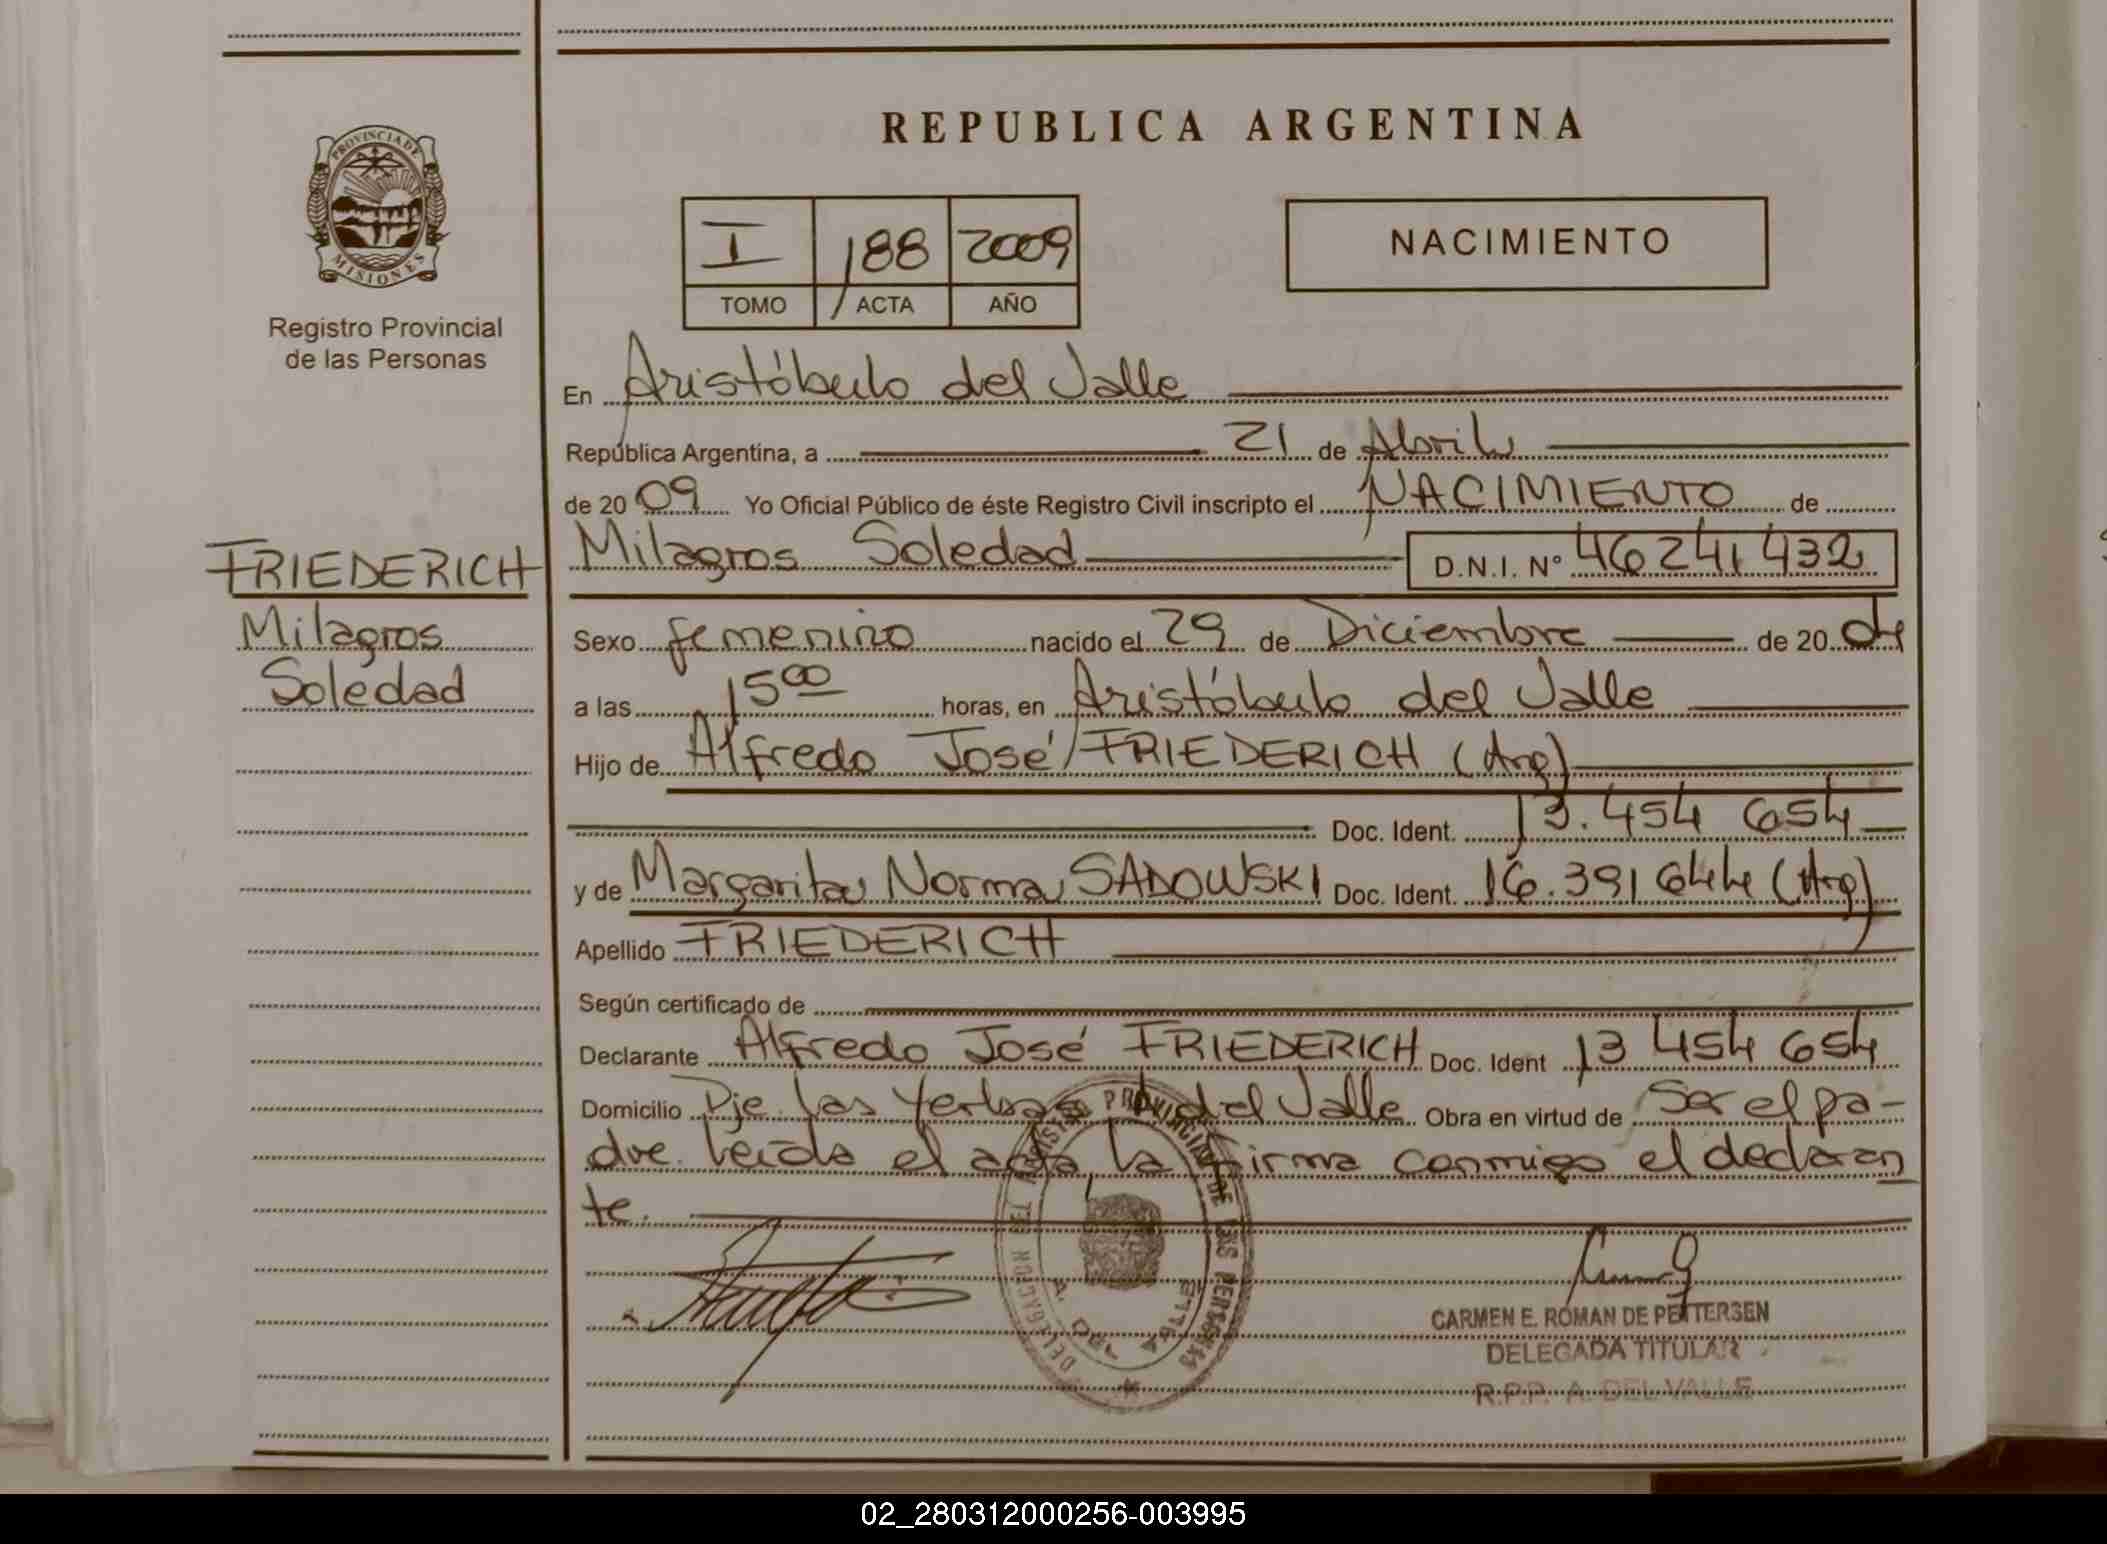 REPUBLICA ARGENTINA
PROVINCIA DE MISIONES
Registro Provincial
de las Personas
I 188 2009
TOMO ACTA AÑO
NACIMIENTO
En Aristóbulo del Valle
República Argentina, a 21 de Abril
de 20 09 Yo Oficial Público de éste Registro Civil inscripto el NACIMIENTO de
FRIEDERICH
Milagros
Soledad
Milagros Soledad D.N.I. N° 46 241 432
Sexo femenino nacido el 29 de Diciembre de 20 04
a las 15 00 horas, en Aristóbulo del Valle
Hijo de Alfredo José FRIEDERICH (Arg)
Doc. Ident. 13.454 654
y de Margarita Norma SADOWSKI Doc. Ident. 16.391 644 (Arg)
Apellido FRIEDERICH
Según certificado de
Declarante Alfredo José FRIEDERICH Doc. Ident 13 454 654
Domicilio Pje. Las Yerbas del Valle Obra en virtud de Ser el pa-
dre. Leída el acta, la firma conmigo el declaran
te.
REGISTRO PROVINCIAL DE LAS PERSONAS
DELEGACION
A. DEL VALLE
CARMEN E. ROMAN DE PETTERSEN
DELEGADA TITULAR
R.P.P. A. DEL VALLE
02_280312000256-003995